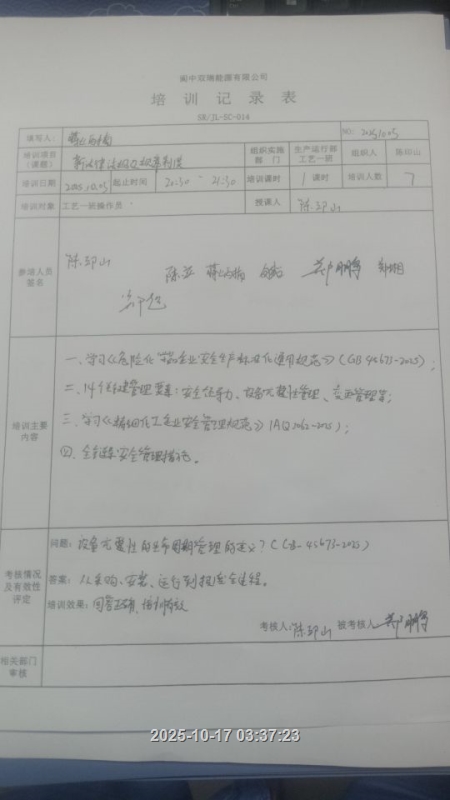 阆中双瑞能源有限公司
培训记录表
SR/JL-SC-014
填写人: NO: 20251005
培训项目(课题) 组织实施部门 生产运行部工艺一班 组织人 陈邱山
培训日期 2025.10.05 起止时间 20:30 - 21:30 培训课时 1课时 培训人数 7
培训对象 工艺一班操作员 授课人 陈邱山
参培人员签名
陈邱山
陈亚
培训主要内容
一、学习《危险化学品企业安全生产标准化通用规范》(GB 45673-2025);
二、14个关键管理要素:安全领导力、设备完整性管理、变更管理等;
三、学习《精细化工企业安全管理规范》(AQ 3062-2025);
四、全链条安全管理
考核情况及有效性评定
问题:设备完整性的全周期管理的定义?(GB-45673-2025)
答案:从采购、安装、运行到报废全过程。
培训效果:回答正确,培训有效
考核人: 陈邱山 被考核人:
相关部门审核
2025-10-17 03:37:23